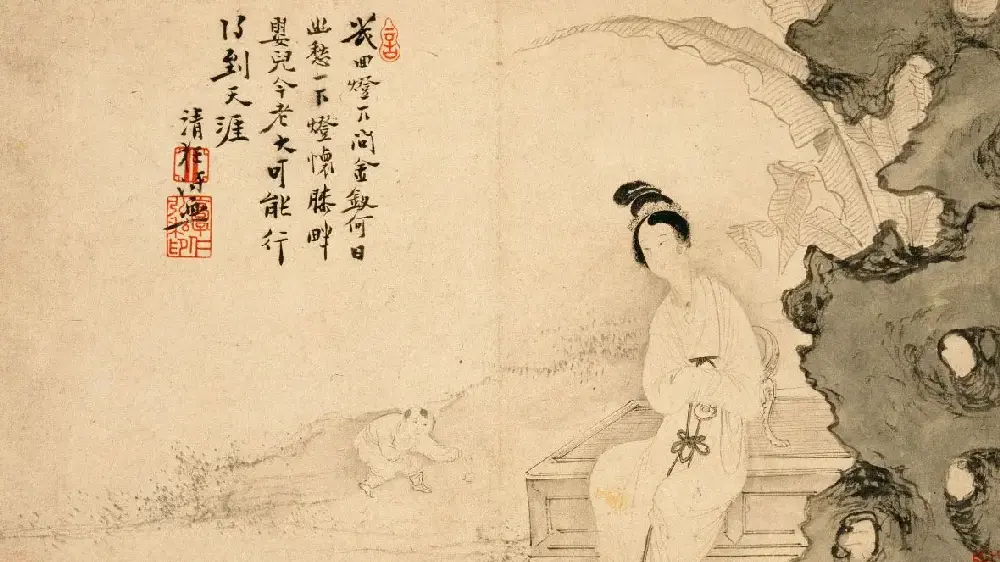 幾回燈下問金釵何日
此愁一下燈懷膝畔
嬰兒今老大可能行
得到天涯
清狂